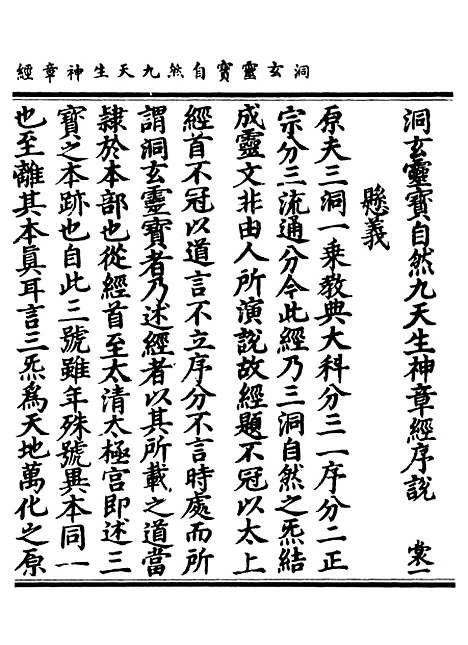 洞玄靈寶自然九天生神章經
洞玄靈寶自然九天生神章經序說 裳一
懸義
原夫三洞一乘教典大科分三一序分二正
宗分三流通分今此經乃三洞自然之炁結
成靈文非由人所演說故經題不冠以太上
經首不冠以道言不立序分不言時處而所
謂洞玄靈寶者乃述經者以其所載之道當
隸於本部也從經首至太清太極宮即述三
寶之本跡也自此三號雖年殊號異本同一
也至離其本真耳言三炁為天地萬化之原